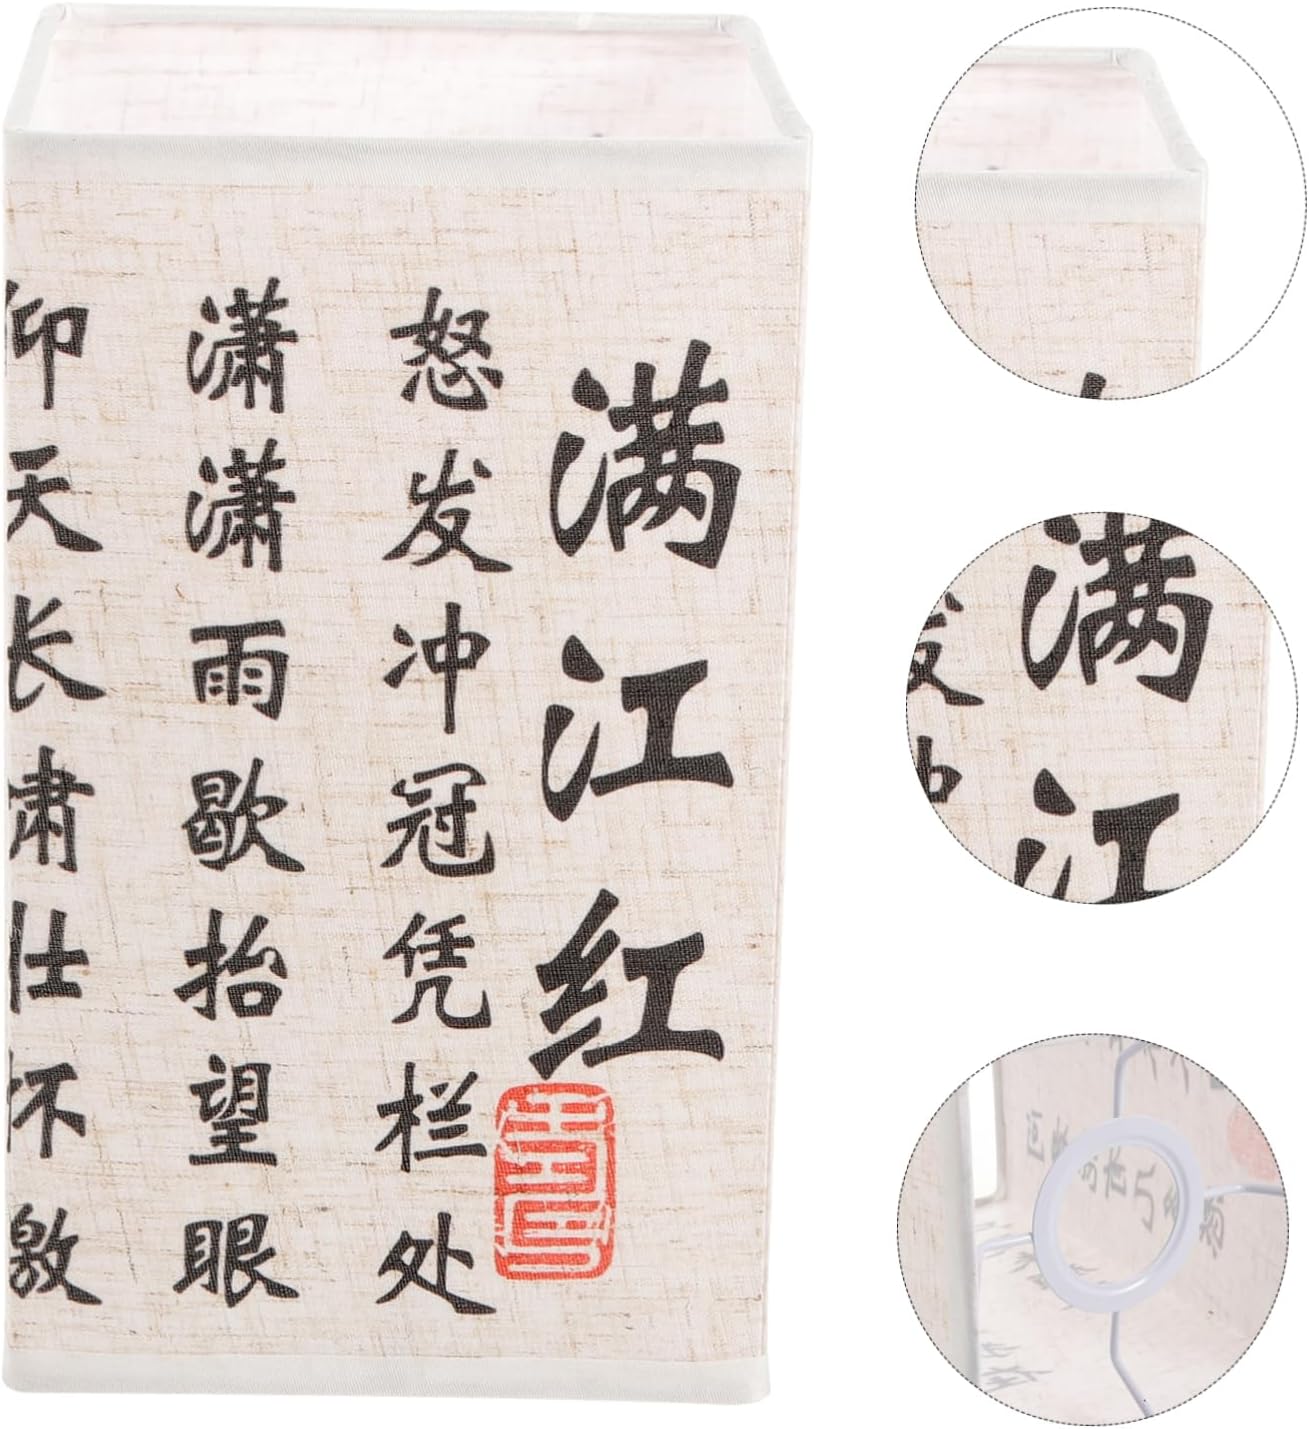 满江红
怒发冲冠凭栏处
潇潇雨歇抬望眼
仰天长啸壮怀激
满江